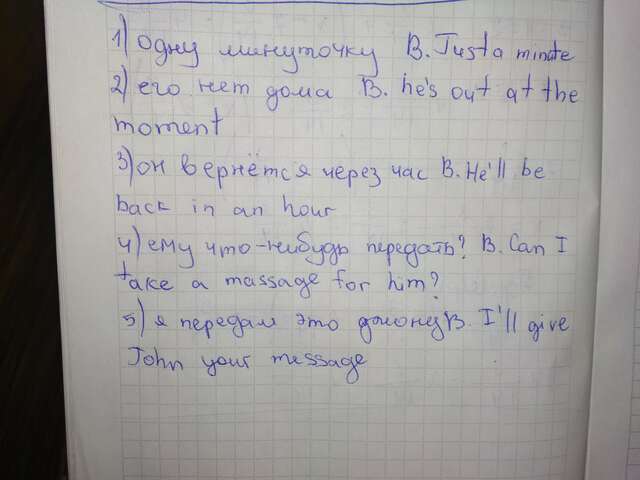 1) одну минуточку B. Just a minute
2) его нет дома B. he's out at the
moment
3) он вернётся через час B. He'll be
back in an hour
4) ему что-нибудь передать? B. Can I
take a massage for him?
5) я передам это джону B. I'll give
John your message